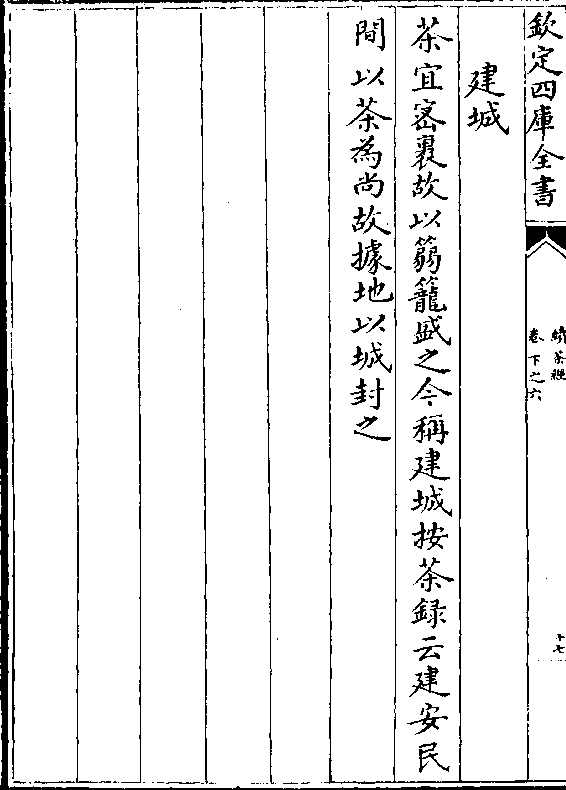 欽定四庫全書
續茶經
卷下之六
十七
建城
茶宜宻裹故以篛籠盛之今稱建城按茶録云建安民
間以茶為尚故據地以城封之